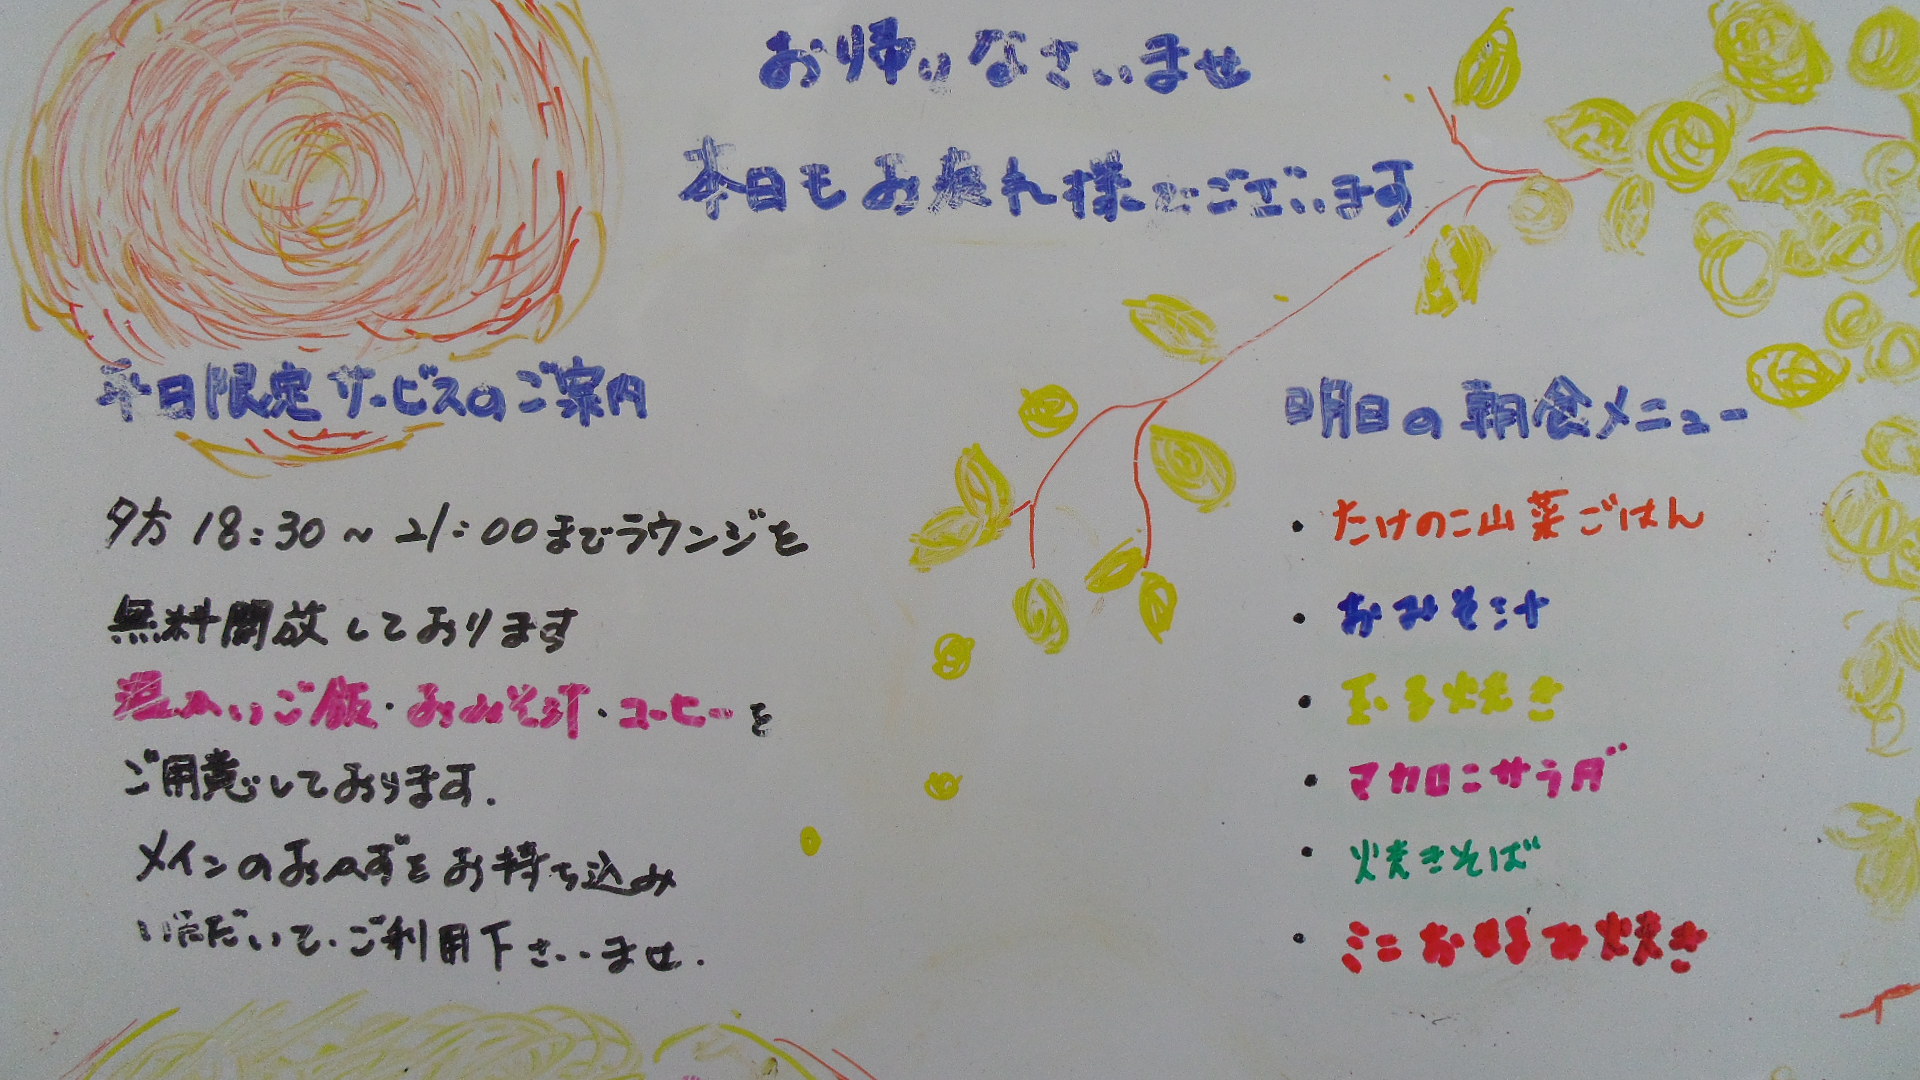 お帰りなさいませ
本日もお疲れ様でございます
平日限定サービスのご案内
夕方 18:30～21:00までラウンジを
無料開放しております
温かいご飯・おみそ汁・コーヒーを
ご用意しております.
メインのおかずをお持ち込み
いただいて、ご利用下さいませ.
明日の朝食メニュー
・たけのこ山菜ごはん
・おみそ汁
・玉子焼き
・マカロニサラダ
・焼きそば
・ミニお好み焼き